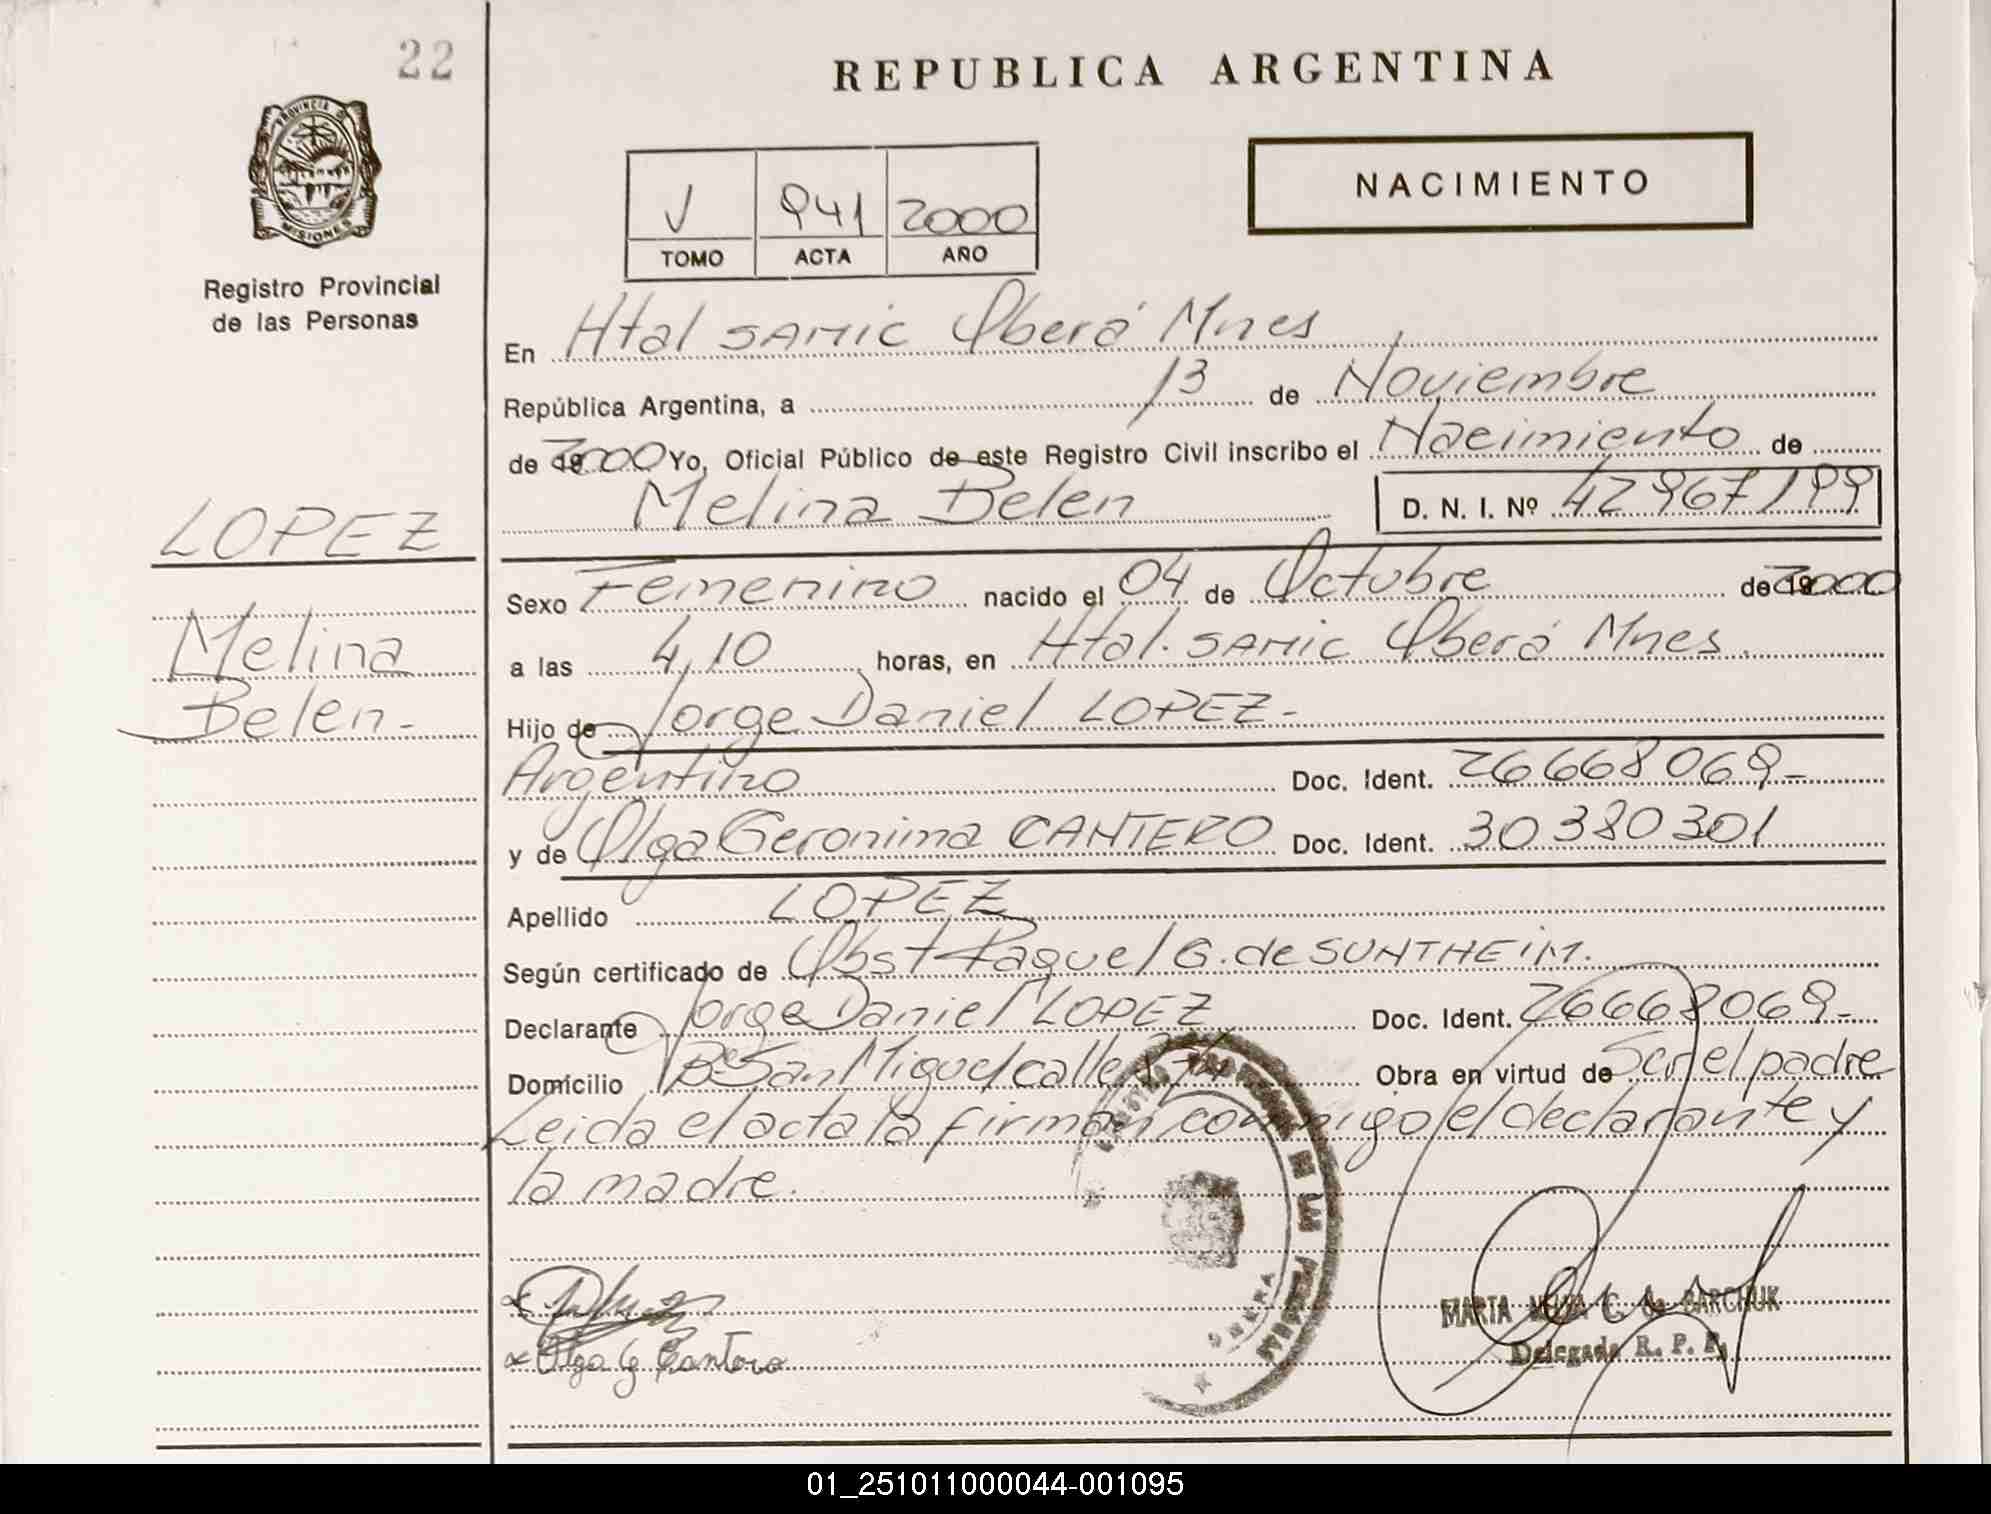 22
REPUBLICA ARGENTINA
PROVINCIA DE
MISIONES
Registro Provincial
de las Personas
V 941 2000
TOMO ACTA AÑO
NACIMIENTO
En Htal SAMIC Oberá Mnes
República Argentina, a 13 de Noviembre
de 2000 Yo, Oficial Público de este Registro Civil inscribo el Nacimiento de
Melina Belen D. N. I. Nº 42967199
LOPEZ
Melina
Belen-
Sexo Femenino nacido el 04 de Octubre de 2000
a las 4,10 horas, en Htal. SAMIC Oberá Mnes.
Hijo de Jorge Daniel LOPEZ-
Argentino Doc. Ident. 26668069-
y de Olga Geronima CANTERO Doc. Ident. 30380301
Apellido LOPEZ
Según certificado de Obst Raquel G. de SUNTHEIM.
Declarante Jorge Daniel LOPEZ Doc. Ident. 26668069-
Domicilio Bº San Miguel calle Obra en virtud de Ser el padre
Leida el acta la firman conmigo el declarante y
la madre.
x Olga G Cantero
OBERA
MARTA C. de BARCHUK
Delegada R. P. P.
01_251011000044-001095